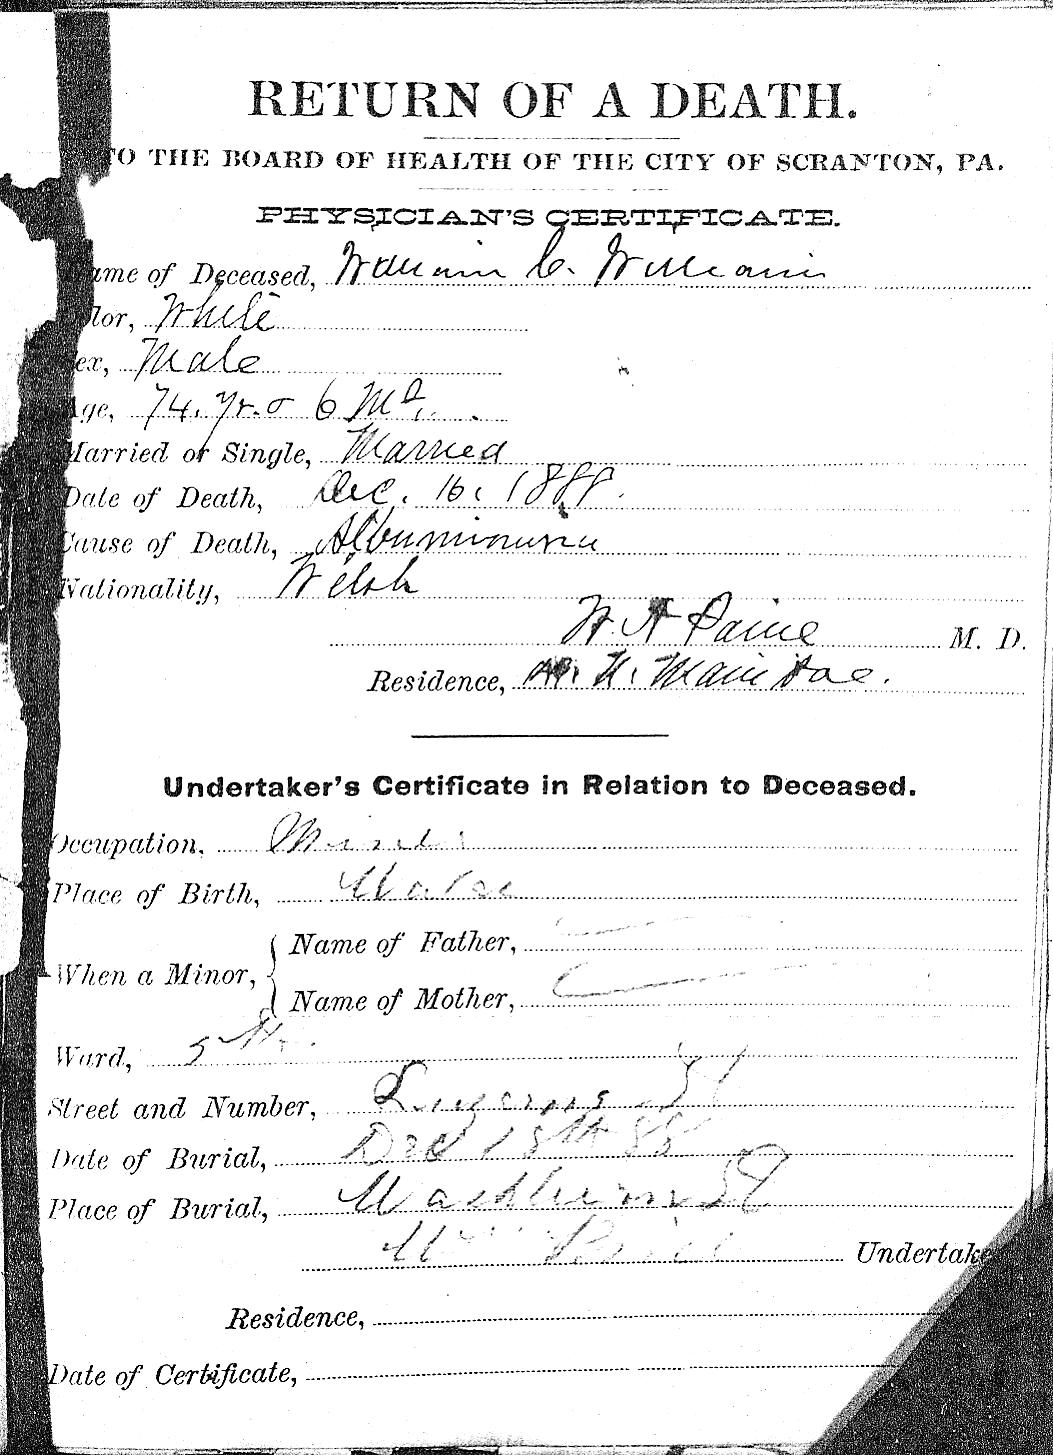 RETURN OF A DEATH.
TO THE BOARD OF HEALTH OF THE CITY OF SCRANTON, PA.
PHYSICIAN'S CERTIFICATE.
ame of Deceased, William C. Williams
lor, White
ex, Male
Age, 74. Yr. & 6 Mo.
Married or Single, Married
Date of Death, Dec. 16, 1888.
Cause of Death, Albuminuria
Nationality, Welsh
W A Paine M. D.
Residence, N. Main Ave.
Undertaker's Certificate in Relation to Deceased.
Occupation, Miner
Place of Birth, Wales
When a Minor, { Name of Father,
Name of Mother,
Ward, 5th.
Street and Number, Luzerne St
Date of Burial, Dec 18th 88
Place of Burial, Washburn St
Wm Price Undertake
Residence,
Date of Certificate,